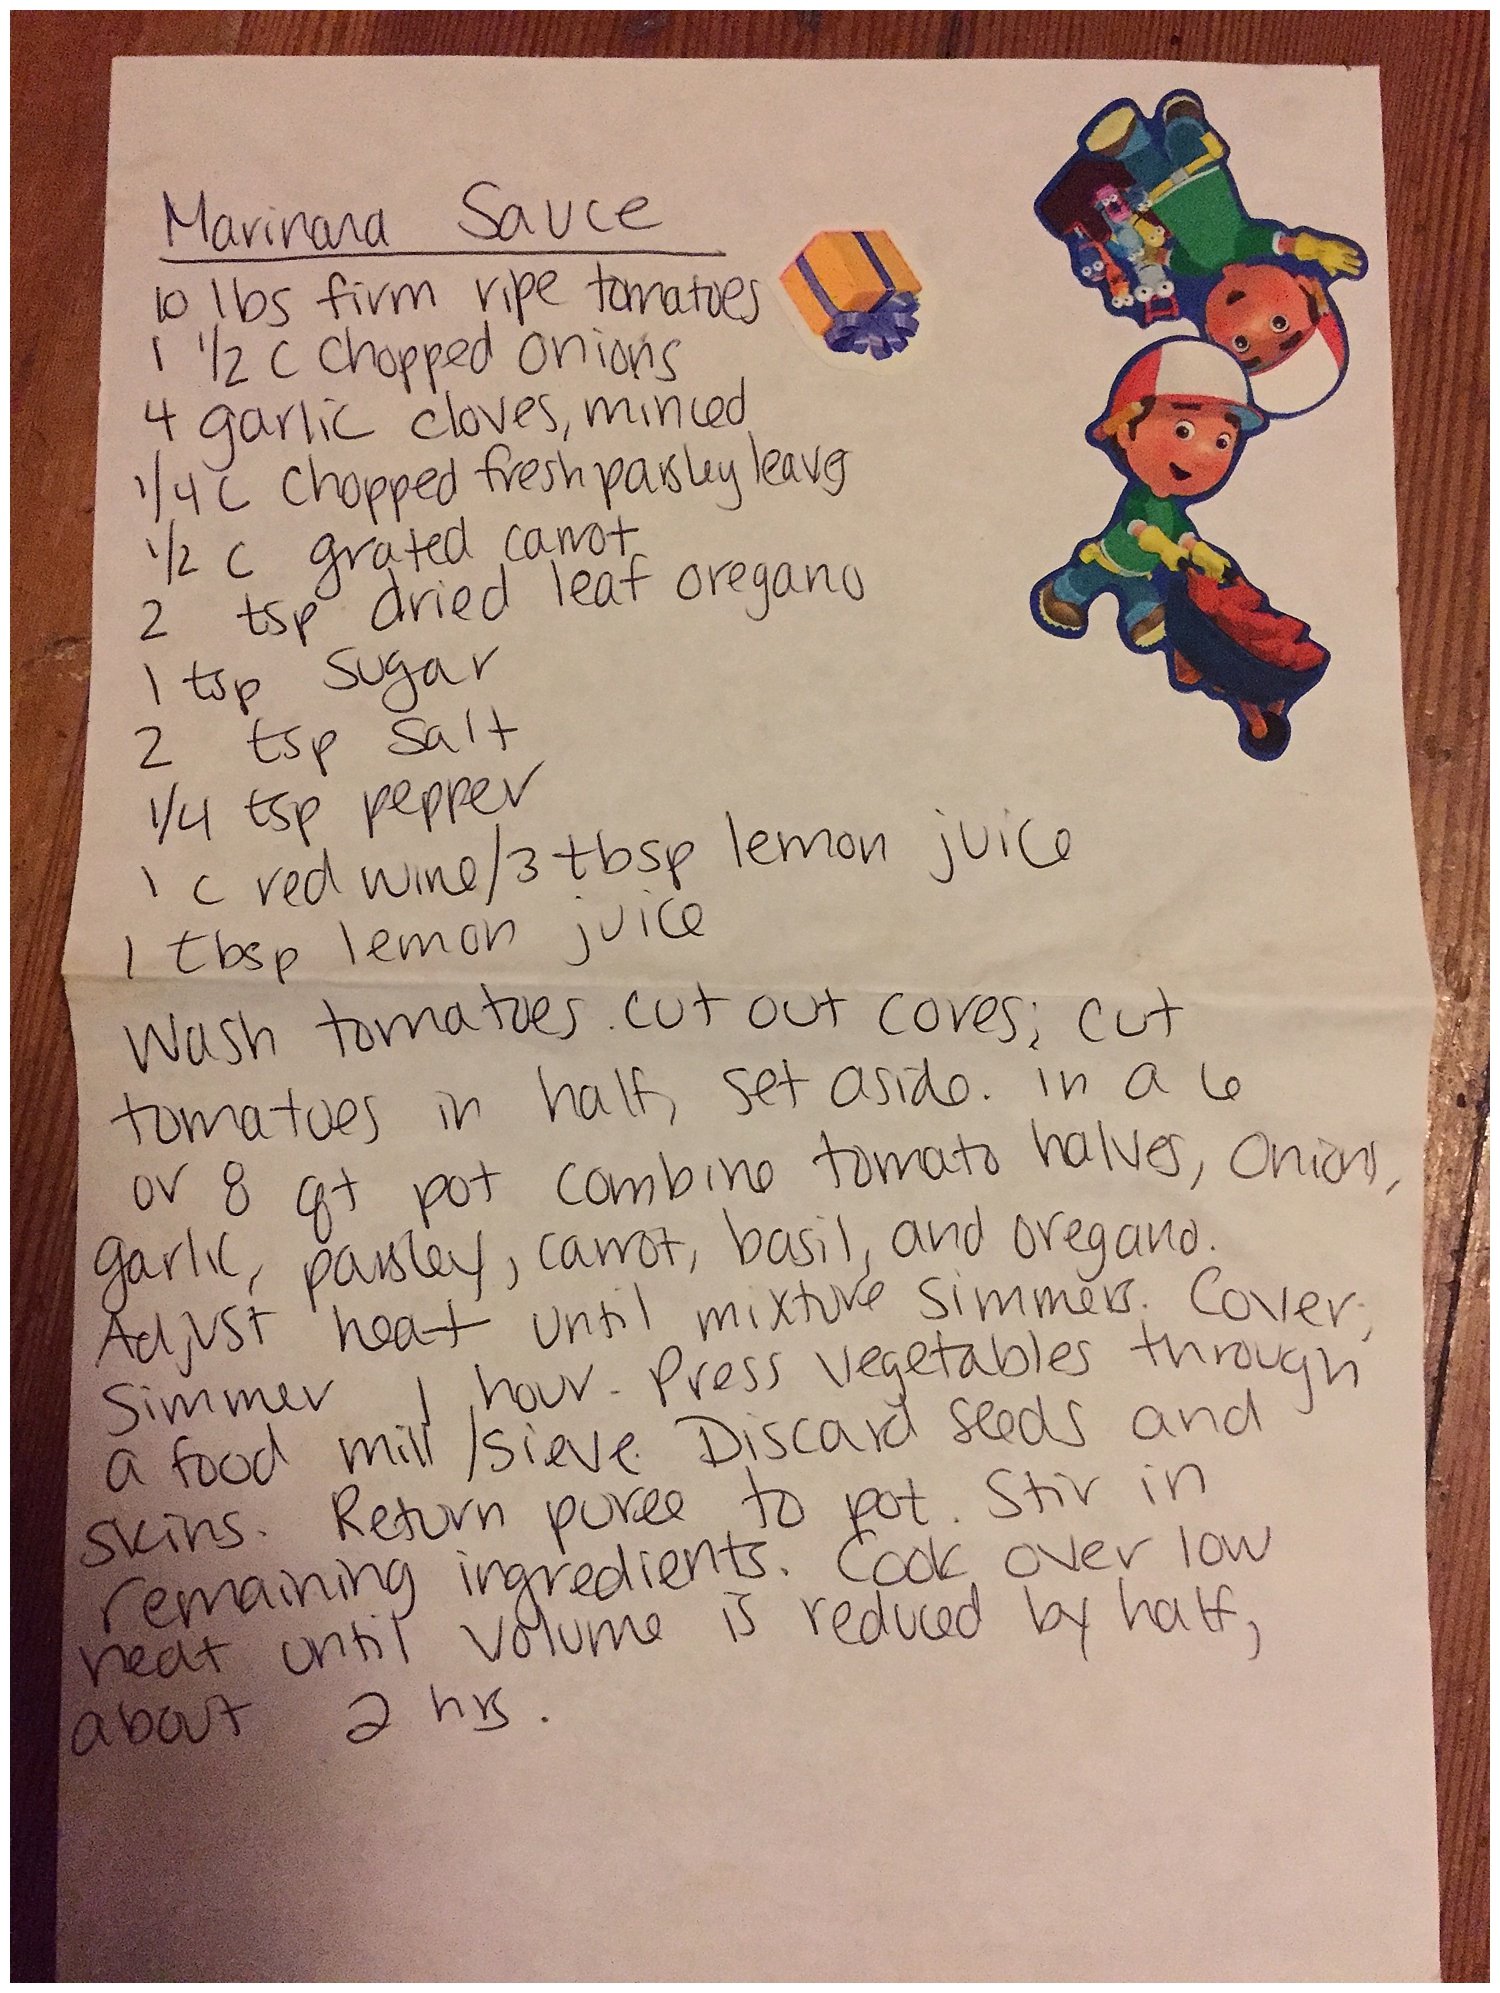 Marinara Sauce
10 lbs firm ripe tomatoes
1 1/2 c chopped onions
4 garlic cloves, minced
1/4 c chopped fresh parsley leaves
1/2 c grated carrot
2 tsp dried leaf oregano
1 tsp sugar
2 tsp salt
1/4 tsp pepper
1 c red wine/3 tbsp lemon juice
1 tbsp lemon juice
Wash tomatoes. cut out cores; cut
tomatoes in half, set aside. in a 6
or 8 qt pot combine tomato halves, onions,
garlic, parsley, carrot, basil, and oregano.
Adjust heat until mixture simmers. Cover;
simmer 1 hour. Press vegetables through
a food mill/sieve. Discard seeds and
skins. Return puree to pot. Stir in
remaining ingredients. Cook over low
heat until volume is reduced by half,
about 2 hrs.